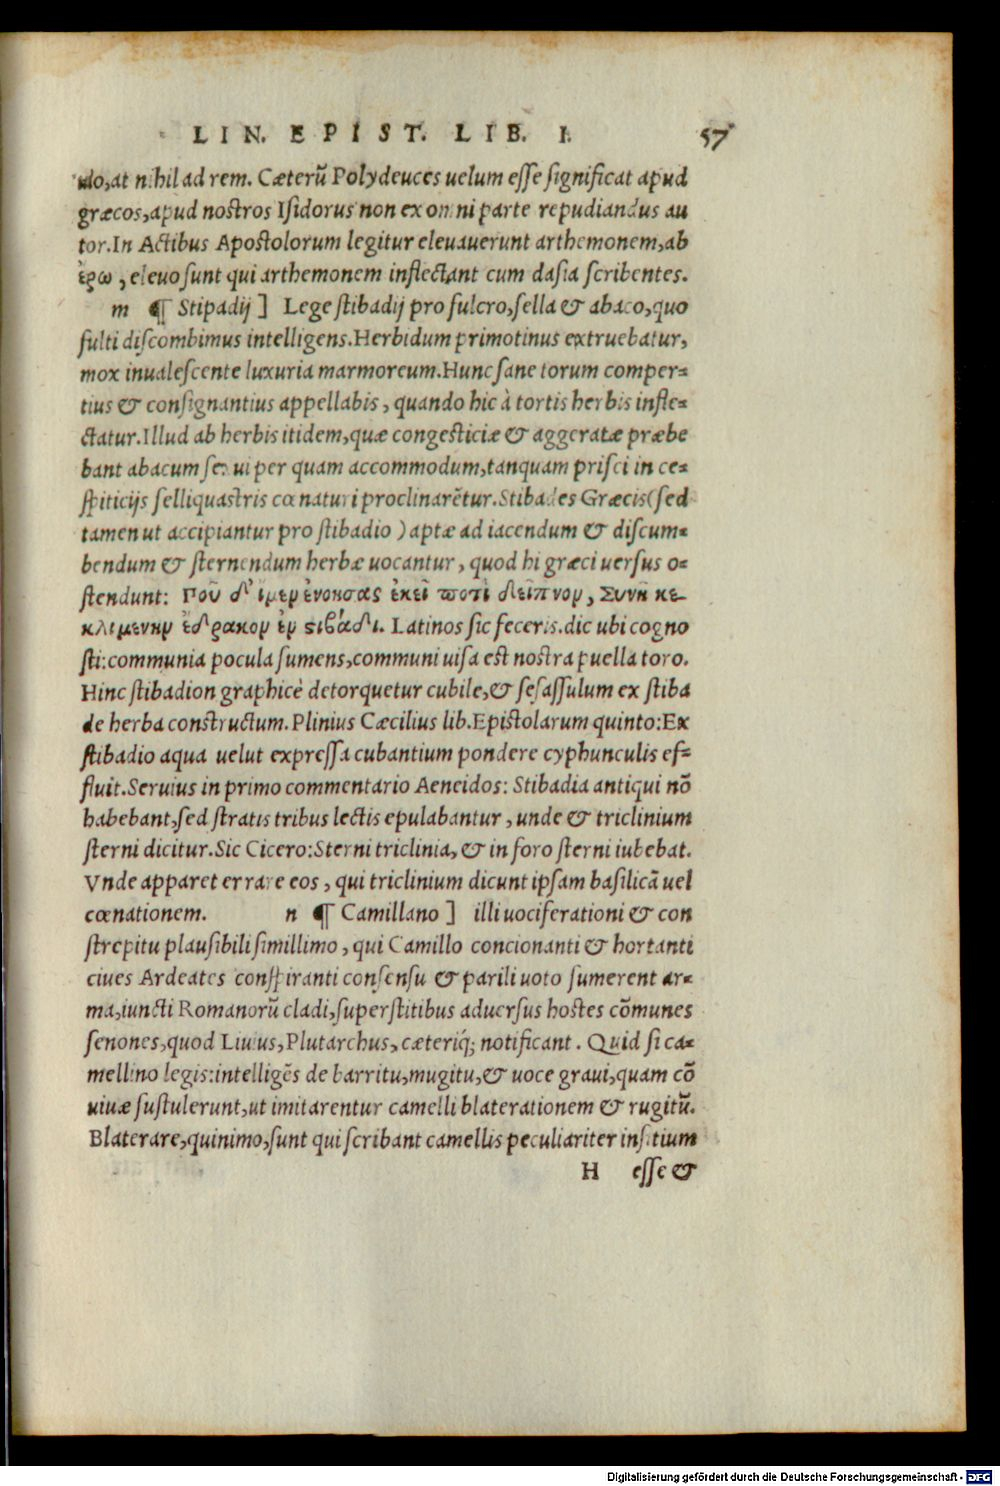 LIN. EPIST. LIB. I. 57
udo,at nihil ad rem. Cæterũ Polydeuces uelum esse significat apud
græcos,apud nostros Isidorus non ex omni parte repudiandus au
tor.In Actibus Apostolorum legitur eleuauerunt arthemonem,ab
ἐρω , eleuo sunt qui arthemonem inflectant cum dasia scribentes.
m ¶ Stipadij ] Lege stibadij pro fulcro,sella & abaco,quo
fulti discombimus intelligens.Herbidum primotinus extruebatur,
mox inualescente luxuria marmoreum.Hunc sane torum comper-
tius & consignantius appellabis, quando hic à tortis herbis infle-
ctatur.Illud ab herbis itidem,quæ congesticiæ & aggeratæ præbe
bant abacum seu ui per quam accommodum,tanquam prisci in ce-
spiticijs selliquastris cœnaturi proclinarẽtur.Stibades Græcis(sed
tamen ut accipiantur pro stibadio ) aptæ ad iacendum & discum-
bendum & sternendum herbæ uocantur, quod hi græci uersus o-
stendunt: Ποῦ δ' ἱμερ ἐνοησας ἐκεῖ ποτὶ δεῖπνον, Συνῆ κε-
κλιμενην ἔδρακον ἐν στιβάδι. Latinos sic feceris.dic ubi cogno
sti:communia pocula sumens,communi uisa est nostra puella toro.
Hinc stibadion graphicè detorquetur cubile,& sesassulum ex stiba
de herba constructum.Plinius Cæcilius lib.Epistolarum quinto:Ex
stibadio aqua uelut expressa cubantium pondere cyphunculis ef-
fluit.Seruius in primo commentario Aeneidos: Stibadia antiqui nõ
habebant,sed stratis tribus lectis epulabantur , unde & triclinium
sterni dicitur.Sic Cicero:Sterni triclinia,& in foro sterni iubebat.
Vnde apparet errare eos , qui triclinium dicunt ipsam basilicã uel
cœnationem. n ¶ Camillano ] illi uociferationi & con
strepitu plausibili simillimo , qui Camillo concionanti & hortanti
ciues Ardeates conspiranti consensu & parili uoto sumerent ar-
ma,iuncti Romanorũ cladi,superstitibus aduersus hostes cõmunes
senones,quod Liuius,Plutarchus, cæteriq́; notificant . Quid si ca-
mellino legis:intelligẽs de barritu,mugitu,& uoce graui,quam cõ
uiuæ sustulerunt,ut imitarentur camelli blaterationem & rugitũ.
Blaterare,quinimo,sunt qui scribant camellis peculiariter insitium
H esse &
Digitalisierung gefördert durch die Deutsche Forschungsgemeinschaft - DFG